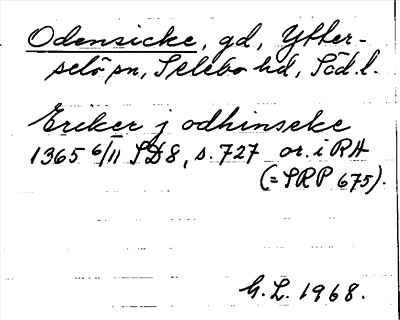 Odensicke, gd, Ytter-
selö sn, Selebo hd, Söd.l.
Eriker j odhinseke
1365 6/II SD8, s. 727 or. i RA
(= SRP 675).
G.L. 1968.